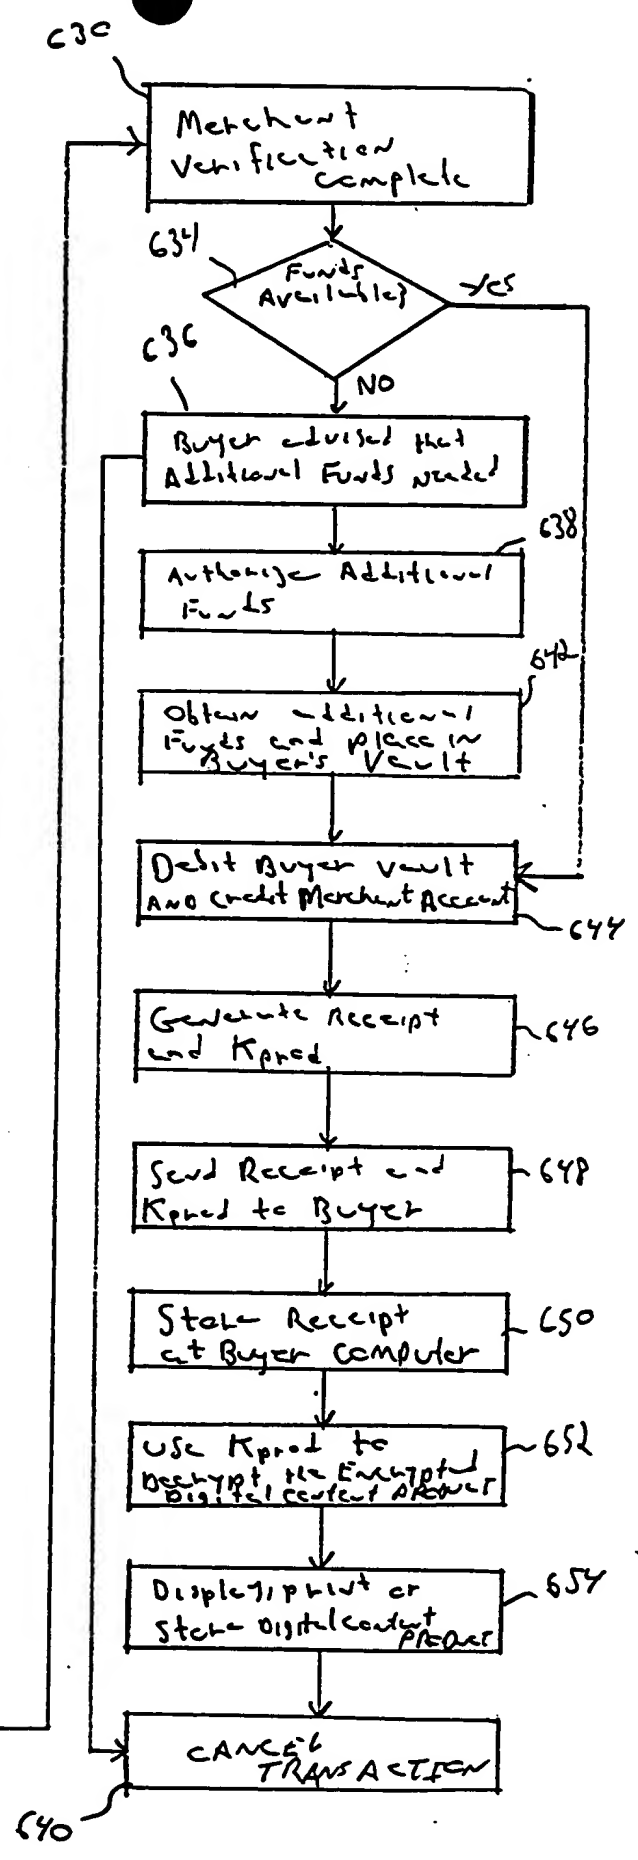 630
Merchant
Verification
complete
634
Funds
Available?
Yes
NO
636
Buyer advised that
Additional Funds needed
638
Authorize Additional
Funds
642
Obtain additional
Funds and place in
Buyer's Vault
Debit Buyer vault
AND credit Merchant Account
644
Generate Receipt
and Kprod
646
Send Receipt and
Kprod to Buyer
648
Store Receipt
at Buyer Computer
650
Use Kprod to
Decrypt the Encrypted
Digital content PRODUCT
652
Display, print or
Store Digital Content
PRODUCT
654
CANCEL
TRANSACTION
640